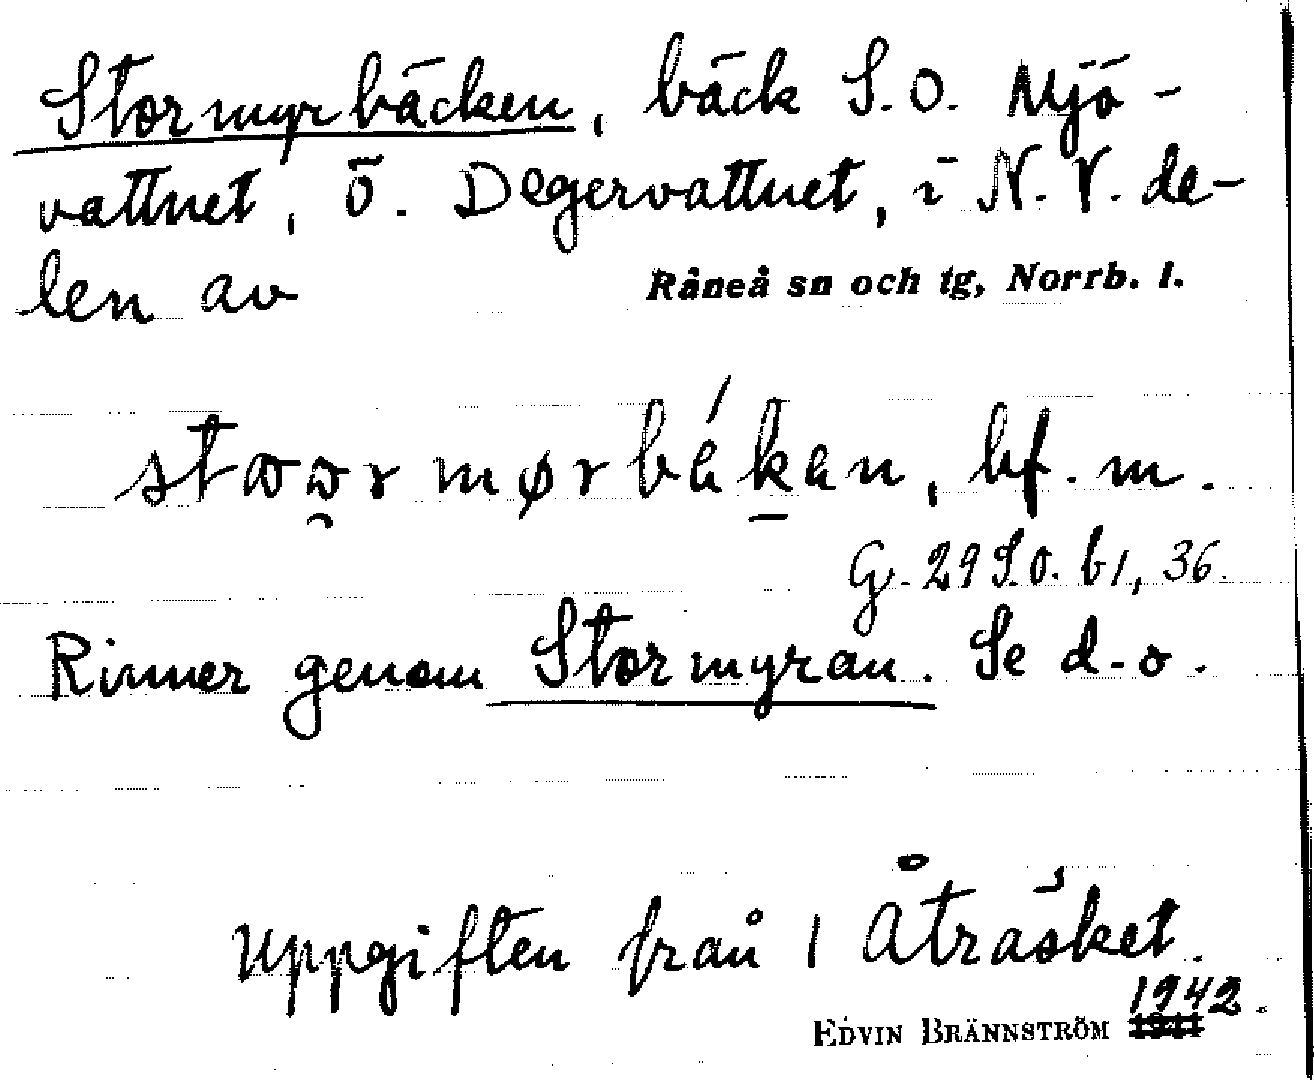 Stormyrbäcken, bäck S.O. Mjö-
vattnet, ö. Degervattnet, i N.V. de-
len av Råneå sn och tg, Norrb. l.
bf. m.
G. 29 S.O. b1, 36.
Rinner genom Stormyran. Se d-o.
Uppgiften från 1 Åträsket.
EDVIN BRÄNNSTRÖM 1942.